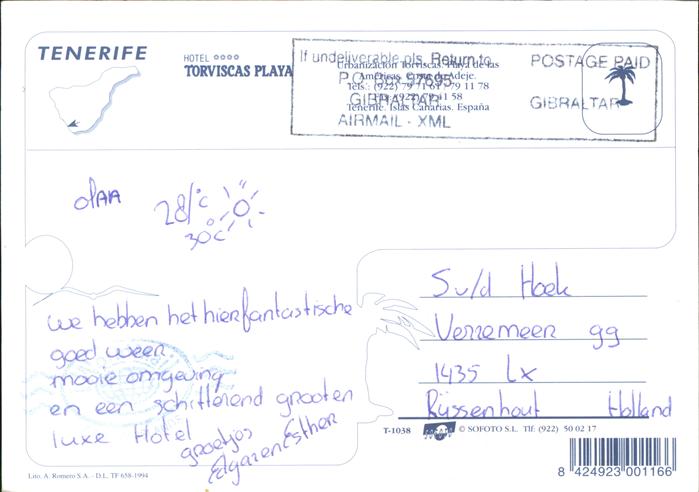 TENERIFE
HOTEL
TORVISCAS PLAYA
Urbanización Torviscas. Playa de las
Américas. Costa de Adeje.
Tels.: (922) 79 71 61 / 79 11 78
Tenerife. Islas Canarias. España
If undeliverable pls. Return to
P.O. Box
GIBRALTAR
AIRMAIL - XML
POSTAGE PAID
GIBRALTAR
28/°c
30c
we hebben het hier fantastische
goed weer
mooie omgeving
en een schitterend grooten
luxe Hotel
groetjes
Edgar en Esther
S v/d Hoek
Verremeer 99
1435 Lx
Rijssenhout Holland
T-1038 © SOFOTO S.L. Tlf: (922) 50 02 17
Lito. A. Romero S.A. - D.L. TF 658-1994
8 424923 001166